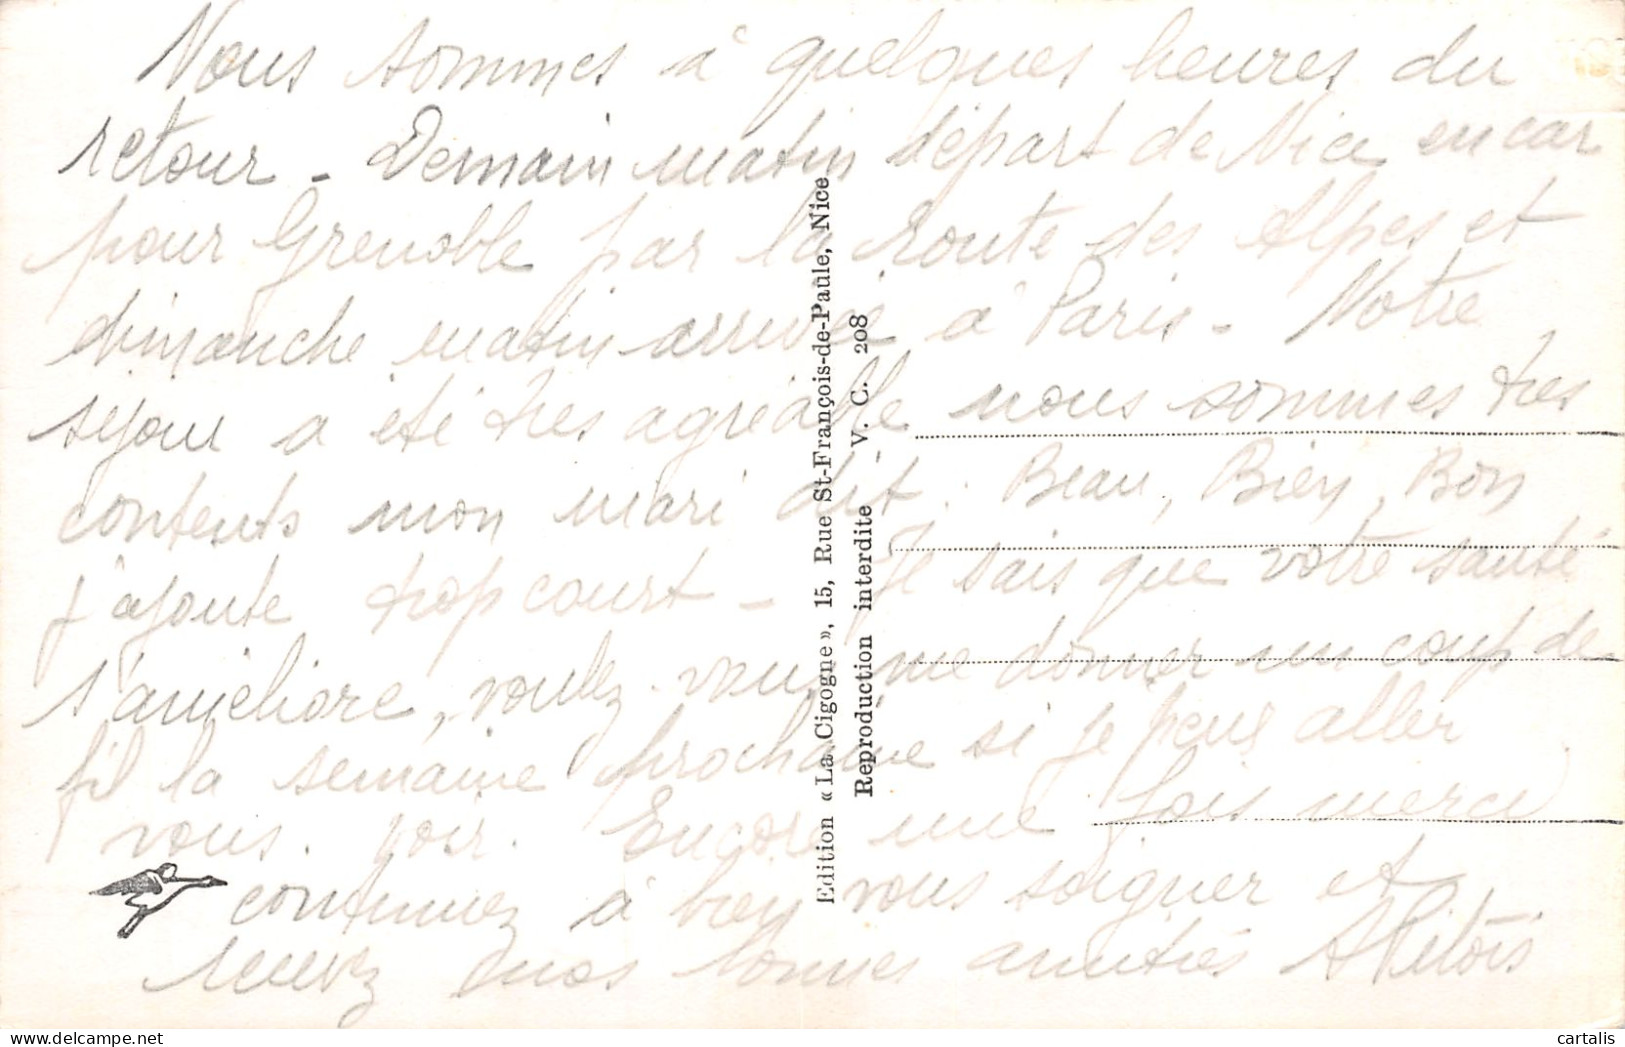 Nous sommes à quelques heures du
retour - Demain matin départ de Nice en car
pour Grenoble par la Route des Alpes et
dimanche matin arrivée à Paris - Notre
séjour a été très agréable nous sommes très
contents mon mari dit : Beau, Bien, Bon
j'ajoute trop court - Je sais que votre santé
s'améliore, voulez-vous me donner un coup de
fil la semaine prochaine si je peux aller
vous voir. Encore une fois merci
continuez à bien vous soigner et
recevez nos bonnes amitiés
Edition « La Cigogne », 15, Rue St-François-de-Paule, Nice
Reproduction interdite V. C. 208
cartalis.com